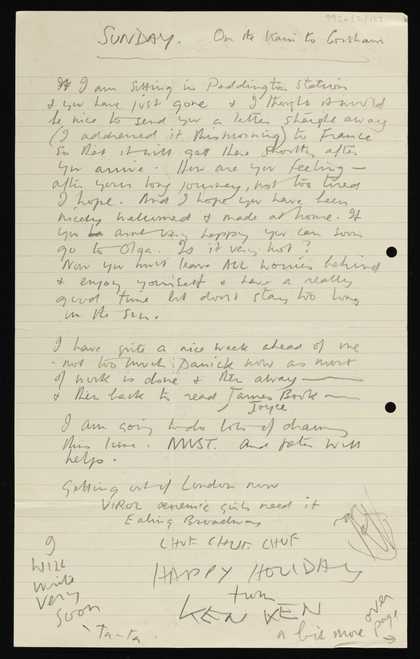 SUNDAY. On the train to Corsham
I am sitting in Paddington Station
& you have just gone & I thought it would
be nice to send you a letter straight away
(I addressed it this morning) to France
so that it will get there shortly after
you arrive. How are you feeling —
after your long journey, not too tired
I hope. And I hope you have been
nicely welcomed & made at home. If
you arent very happy you can soon
go to Olga. Is it very hot?
Now you must leave ALL worries behind
& enjoy yourself & have a really
good time but dont stay too long
in the sun.
I have quite a nice week ahead of me
- not too much panick now as most
of work is done & then away —
& then back to read James Book —
Joyce
I am going to do lots of drawing
this time. MUST. And that will
helps.
Getting out of London now
VIROL anaemic girls need it
Ealing Broadway
CHUF CHUF CHUF
I
WILL
write
very
soon
Ta-ta.
HAPPY HOLIDAY
from
KEN KEN
a bit more over
page